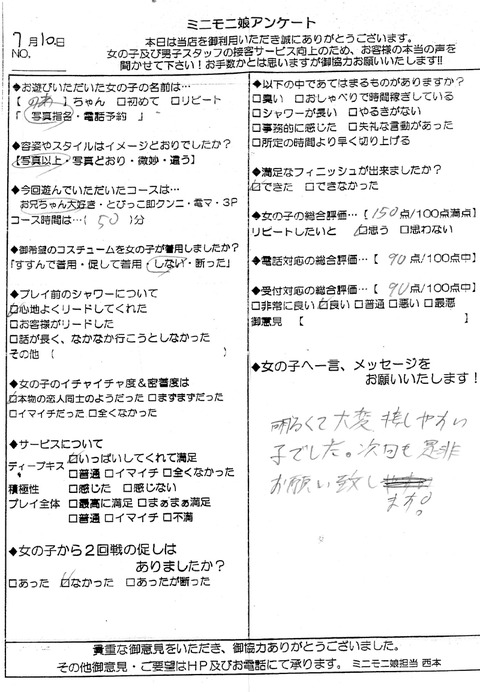 ミニモニ娘アンケート
7月10日
NO.
本日は当店を御利用いただき誠にありがとうございます。
女の子及び男子スタッフの接客サービス向上のため、お客様の本当の声を
聞かせて下さい!お手数かとは思いますが御協力お願いいたします!!
◆お遊びいただいた女の子の名前は…
【 のあ 】ちゃん □初めて □リピート
「 写真指名・電話予約 」
◆容姿やスタイルはイメージとおりでしたか?
【写真以上・写真どおり・微妙・違う】
◆今回遊んでいただいたコースは…
お兄ちゃん大好き・とびっこ即クンニ・電マ・3P
コース時間は…( 50 )分
◆御希望のコスチュームを女の子が着用しましたか?
「すすんで着用・促して着用・しない・断った」
◆プレイ前のシャワーについて
□心地よくリードしてくれた
□お客様がリードした
□話が長く、なかなか行こうとしなかった
その他( )
◆女の子のイチャイチャ度&密着度は
□本物の恋人同士のようだった □まずまずだった
□イマイチだった □全くなかった
◆サービスについて
ディープキス □いっぱいしてくれて満足
□普通 □イマイチ □全くなかった
積極性 □感じた □感じない
プレイ全体 □最高に満足 □まぁまぁ満足
□普通 □イマイチ □不満
◆女の子から2回戦の促しは
ありましたか?
□あった □なかった □あったが断った
◆以下の中であてはまるものがありますか?
□臭い □おしゃべりで時間稼ぎしている
□シャワーが長い □やるきがない
□事務的に感じた □失礼な言動があった
□所定の時間より早く切り上げる
◆満足なフィニッシュが出来ましたか?
□できた □できなかった
◆女の子の総合評価…【 150 点/100点満点】
リピートしたいと □思う □思わない
◆電話対応の総合評価…【 90 点/100点中】
◆受付対応の総合評価…【 90 点/100点中】
□非常に良い □良い □普通 □悪い □最悪
御意見 【 】
◆女の子へ一言、メッセージを
お願いいたします!
明るくて大変接しやすい
子でした。次回も是非
お願い致し
ます。
貴重な御意見をいただき、御協力ありがとうございました。
その他御意見・ご要望はHP及びお電話にて承ります。 ミニモニ娘担当 西本